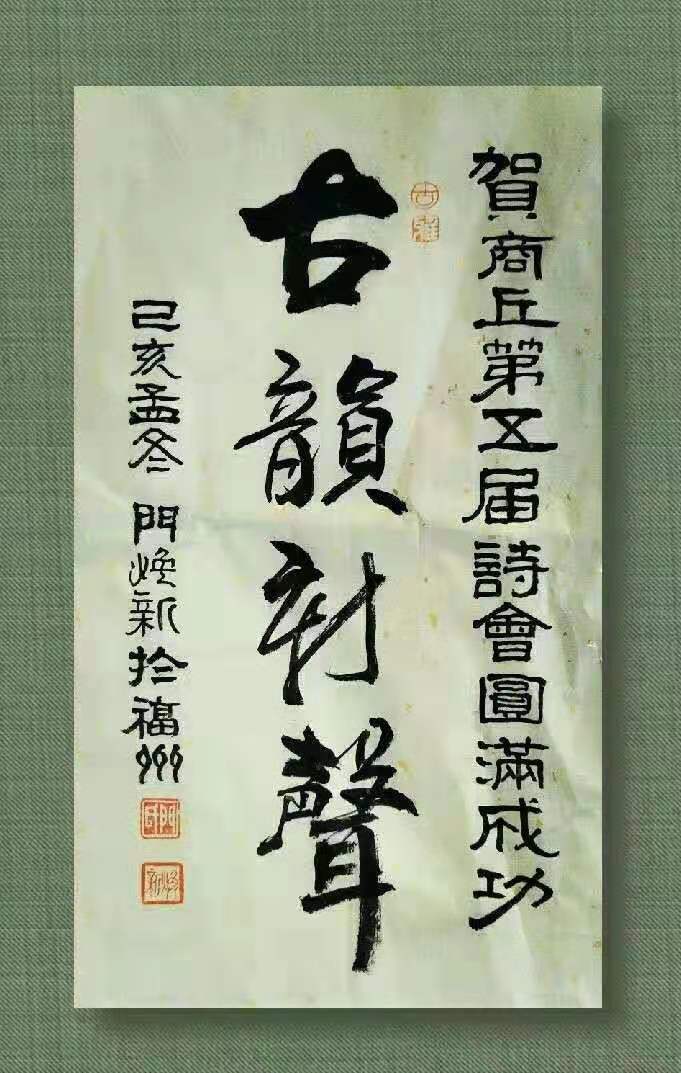 賀商丘第五届詩會圓滿成功
古韻新聲
己亥孟冬 門焕新於福州